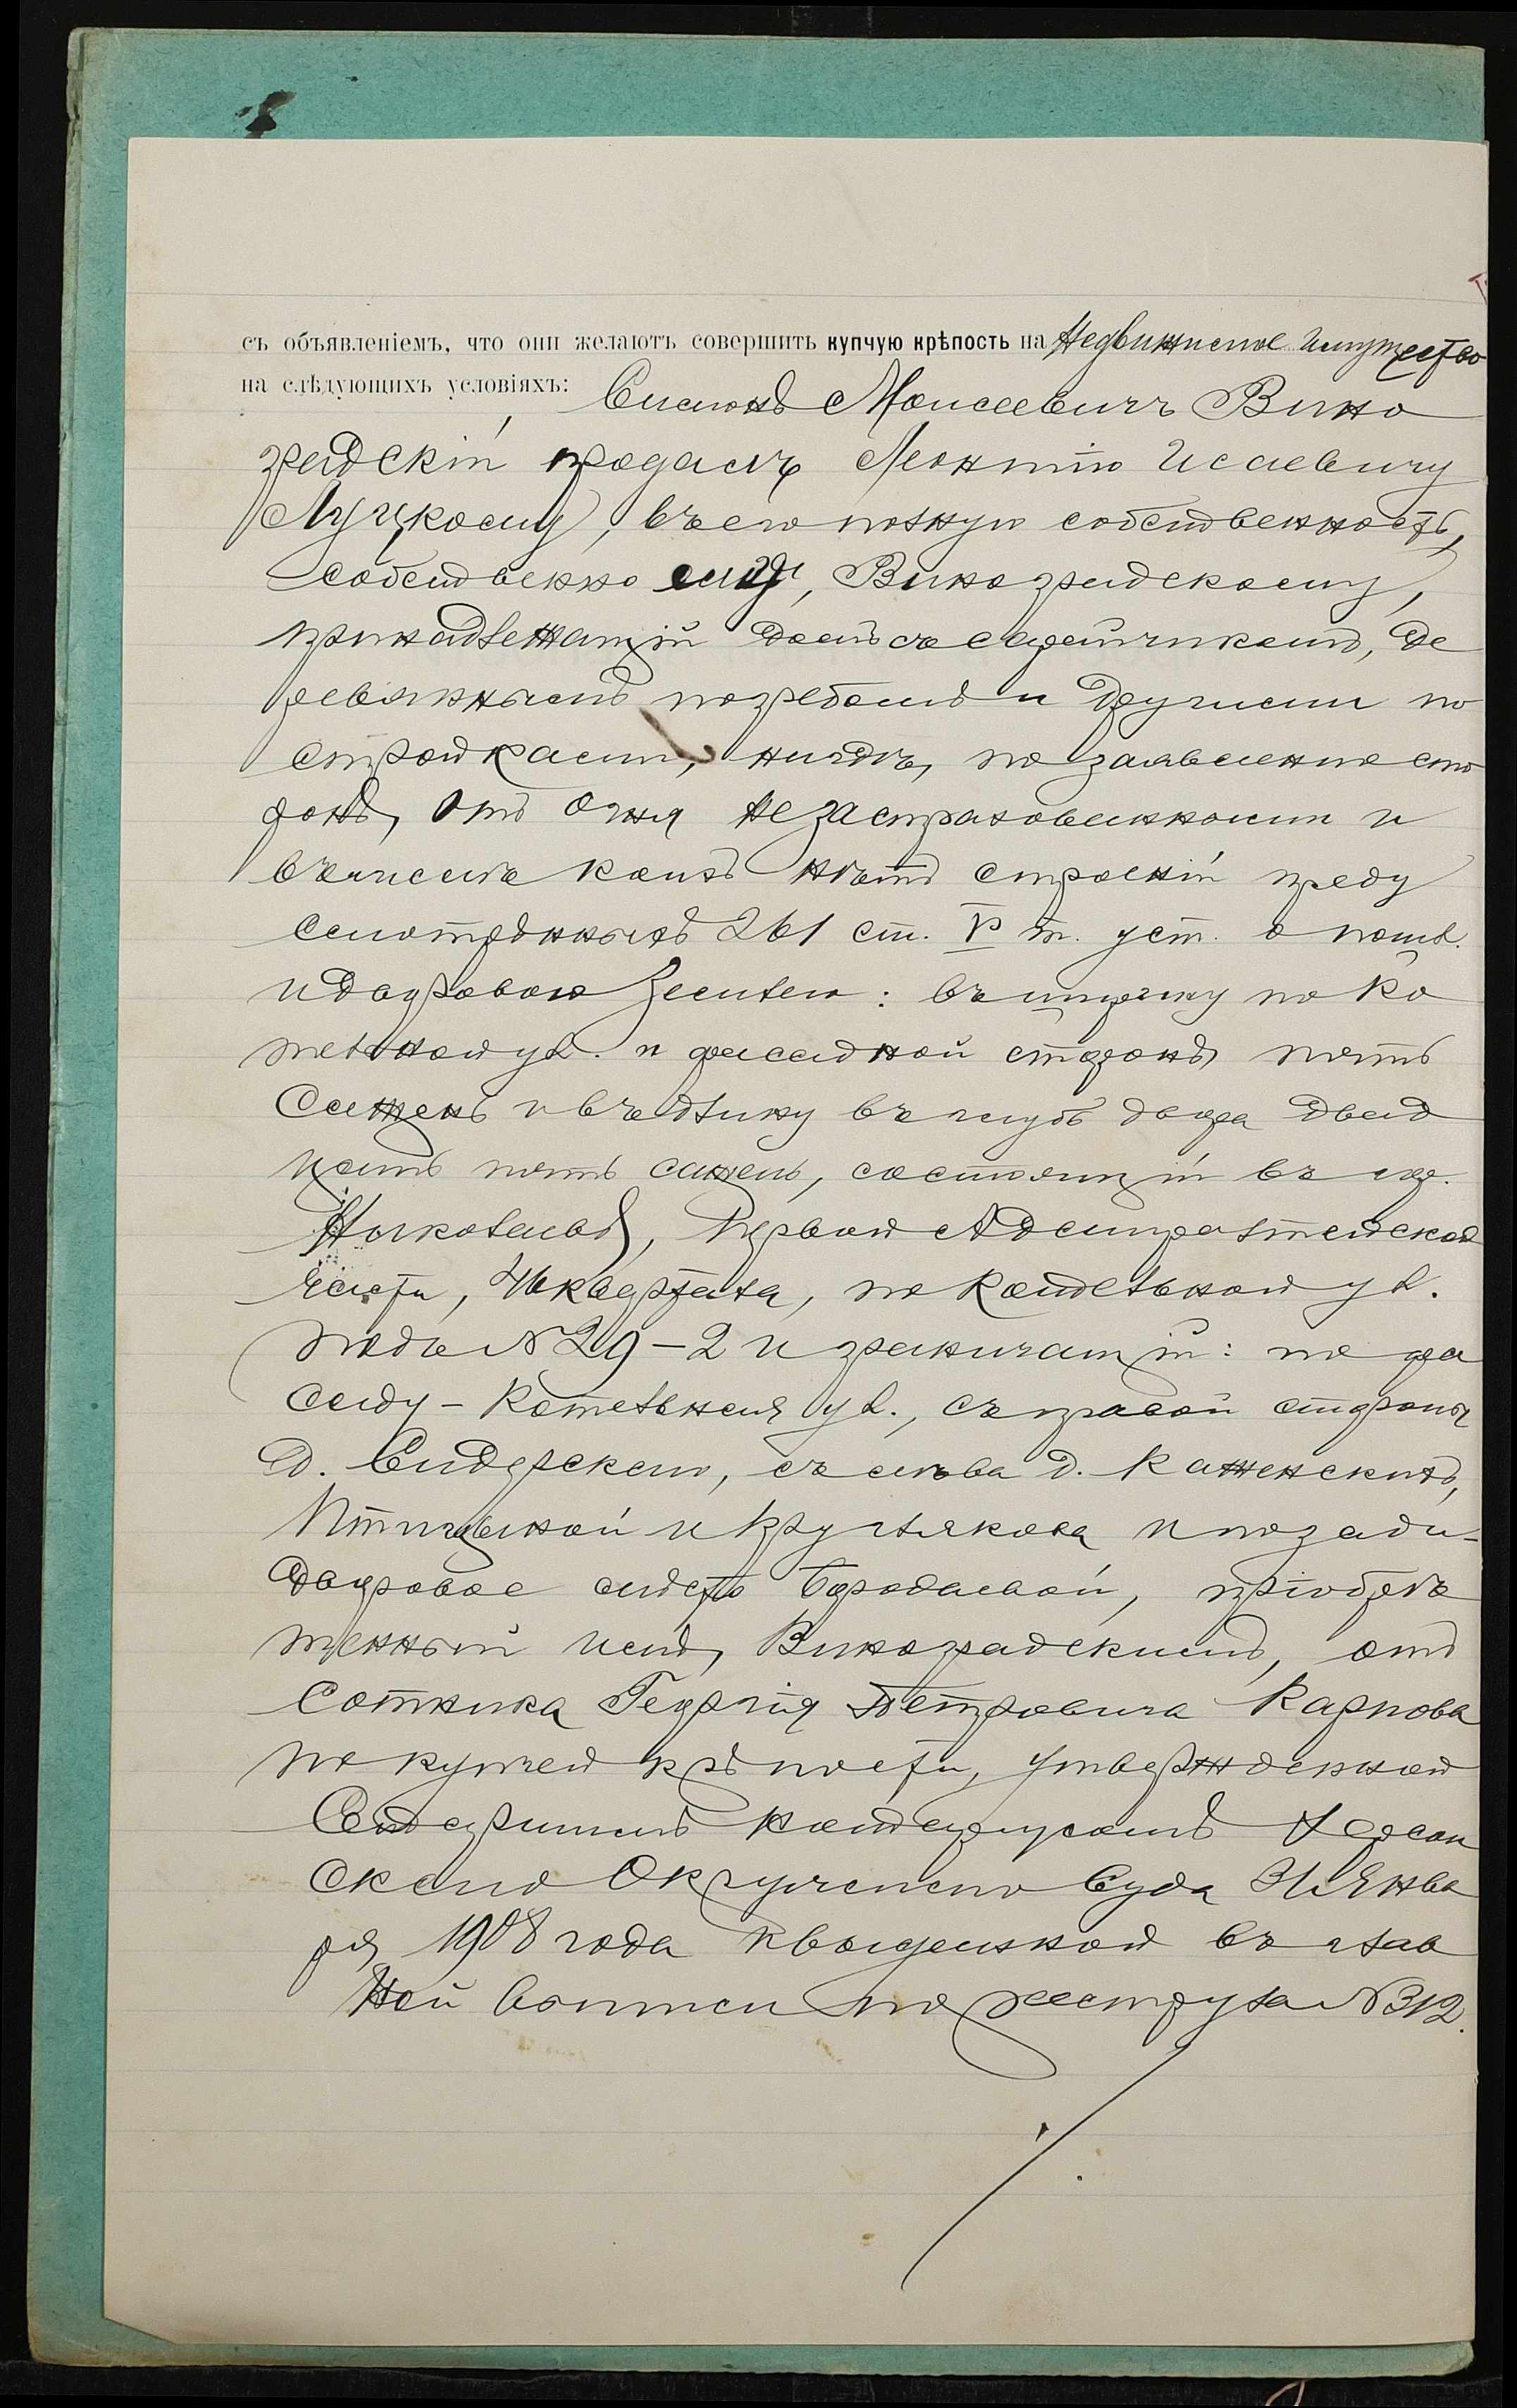 съ объявленіемъ, что они желаютъ совершить купчую крѣпость на недвижимое имущество
на слѣдующихъ условіяхъ: Симонъ Моисеевичъ Вино
градскій продалъ Леонтію Исаевичу
Луцкому, въ его полную собственность,
собственно ему, Виноградскому,
принадлежащій домъ съ сарайчикомъ, де
ревяннымъ погребомъ и другими по
стройками, нигдѣ, по заявленію сто
ронъ, отъ огня незастрахованными и
въ числѣ коихъ нѣтъ строеній преду
смотрѣнныхъ 261 ст. V т. уст. о пошл.
и дворовою землею: въ ширину по Ко
тельной ул. и фасадной сторонѣ пять
сажень и въ длину въ глубь двора двад
цать пять сажень, состоящій въ гор.
Николаевѣ, Первой Адмиралтейской
части, 4 квартала, по Котельной ул.
подъ № 29-2 и граничащій: по фа
саду - Котельная ул., съ правой стороны
д. Сидерскаго, съ лѣва д. Каменскихъ,
Птицыной и Круглякова и позади-
дворовое мѣсто Бородаевой, пріобрѣ
тенный имъ, Виноградскимъ, отъ
сотника Георгія Петровича Карпова
по купчей крѣпости, утвержденной
Старшимъ Нотаріусомъ Херсон
скаго Окружнаго Суда 31 Янва
ря 1908 года и выданной въ глав
ной выписи по реестру за № 312.